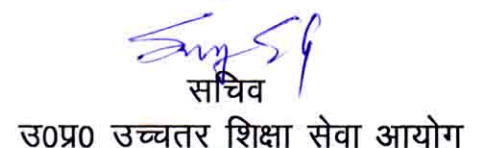 सचिव
उ0प्र0 उच्चतर शिक्षा सेवा आयोग